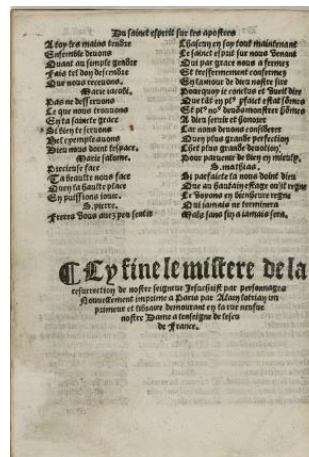 Du sainct esprit sur les apostres
A toy tes mains tendre
Ensemble deuons
Quant au simple gendre
Fais tel don descendre
Que nous receuons.
Marie iacobi.
Pas ne desseruons
Ce que nous trouuons
En ta saincte grace
Si bien te seruons
Bel exemple auons
Dieu nous doint lespace.
Marie salome.
Precieuse face
Ta beaulte nous face
Quen ta haulte place
En puissions iouir.
S. pierre.
Freres vous auez peu sentir
Chascun en soy tout maintenant
Le sainct esperit sur nous venant
Qui par grace nous a fermez
Et tresfermement confermez
En lamour de dieu nostre sire
Pourquoy ie conclus et vueil dire
Que en
Et deuõs monstrer hõmes
A dieu seruir et honorer
Car nous deuons considerer
Quen plus grande perfection
Chet plus grande deuotion
Pour paruenir de bien en mieulx.
S. mathias.
Si parfaicte la nous doint dieu
Que au haultain estage ou il regne
Le voyons en bieneuree regne
Qui iamais ne terminera
Mais sans fin a iamais sera.
¶ Cy fine le mistere de la
resurrection de nostre seigneur Jesuchrist par personnages
Nouuellement imprime a Paris par Alain lotrian im
primeur et libraire demourant en la rue neufue
nostre Dame a lenseigne de lescu
de France.